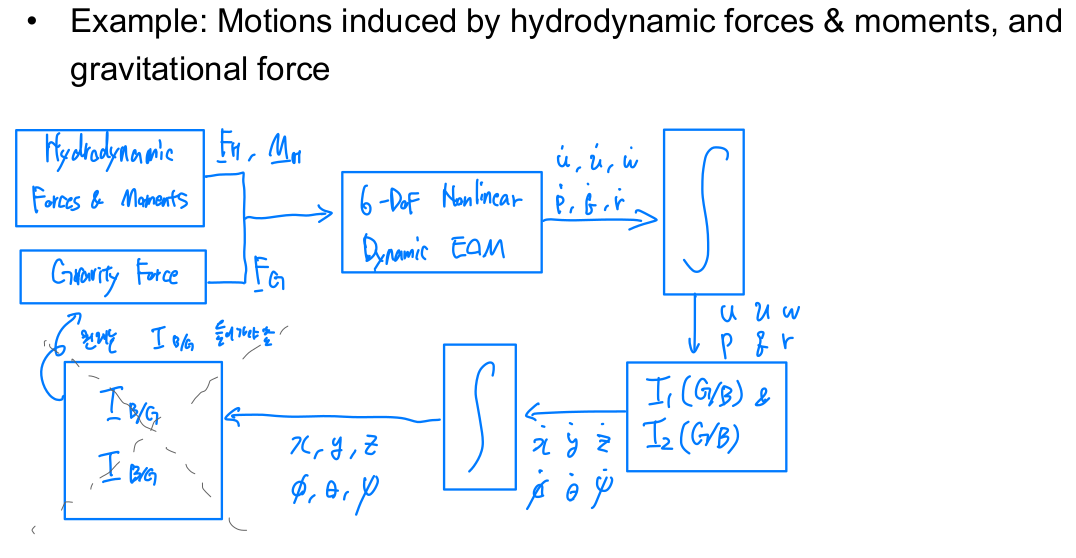 • Example: Motions induced by hydrodynamic forces & moments, and
gravitational force
Hydrodynamic
Forces & Moments
F_H, M_H
Gravity Force
F_G
6-DoF Nonlinear
Dynamic EOM
u̇, v̇, ẇ
ṗ, q̇, ṙ
∫
u v w
p q r
T₁(G/B) &
T₂(G/B)
ẋ ẏ ż
φ̇ θ̇ ψ̇
∫
x, y, z
φ, θ, ψ
원래는 T B/G 들어가야 함
T B/G
T B/G